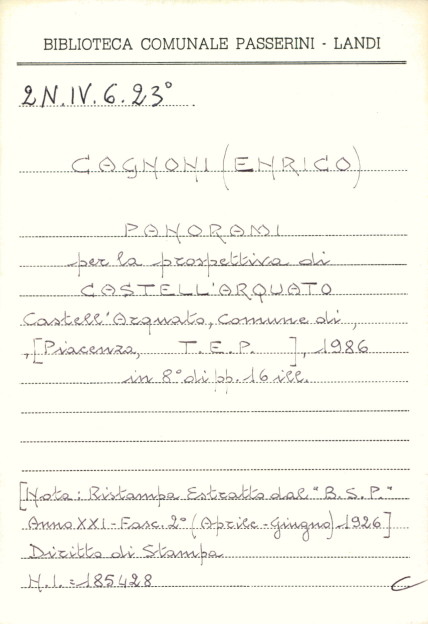 BIBLIOTECA COMUNALE PASSERINI - LANDI
2N.IV.6.23°
CAGNONI (ENRICO)
PANORAMI
per la prospettiva di
CASTELL'ARQUATO
Castell'Arquato, Comune di,
,[Piacenza, T.E.P. ], 1986
in 8° di pp. 16 ill.
[Nota: Ristampa Estratto dal "B.S.P."
Anno XXI - Fasc. 2° (Aprile - Giugno) 1926]
Diritto di Stampa
N.I. = 185428
C